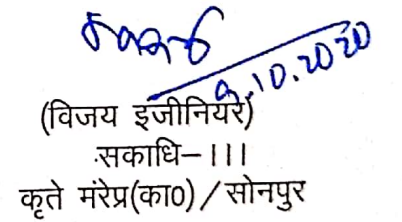 9.10.2020
(विजय इंजीनियरे)
सकाधि-III
कृते मंरेप्र(का0)/सोनपुर